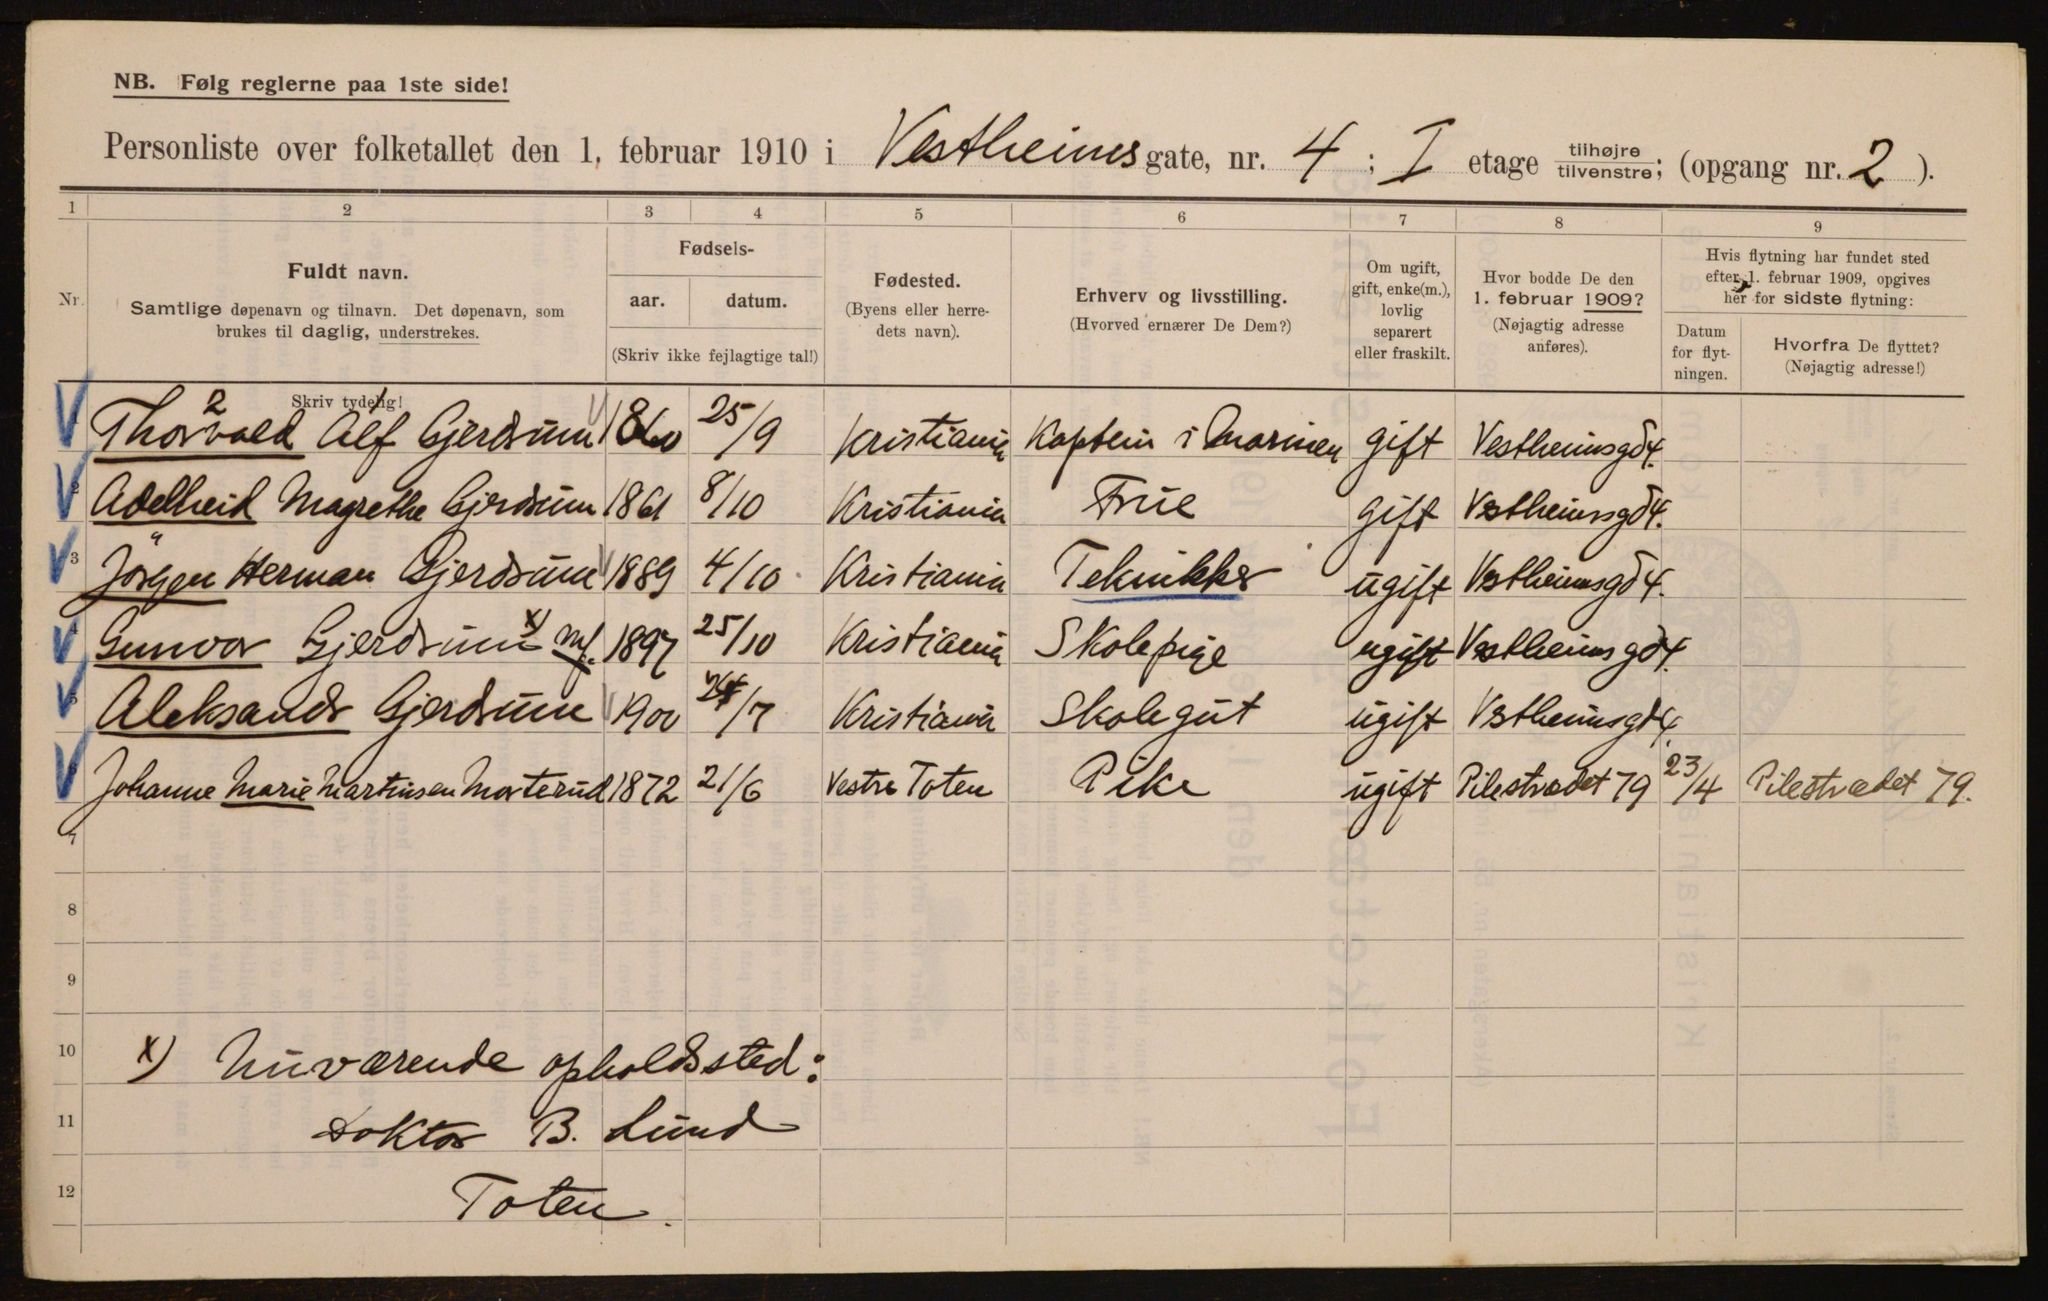 NB. Følg reglerne paa 1ste side!
Personliste over folketallet den 1. februar 1910 i Vestheims gate, nr. 4 ; I etage tilhøjre / tilvenstre; (opgang nr. 2 ).
1 2 3 4 5 6 7 8 9
Nr.
Fuldt navn.
Samtlige døpenavn og tilnavn. Det døpenavn, som
brukes til daglig, understrekes.
Skriv tydelig!
Fødsels-
aar. datum.
(Skriv ikke fejlagtige tal!)
Fødested.
(Byens eller herre-
dets navn).
Erhverv og livsstilling.
(Hvorved ernærer De Dem?)
Om ugift,
gift, enke(m.),
lovlig
separert
eller fraskilt.
Hvor bodde De den
1. februar 1909?
(Nøjagtig adresse
anføres).
Hvis flytning har fundet sted
efter 1. februar 1909, opgives
her for sidste flytning:
Datum
for flyt-
ningen.
Hvorfra De flyttet?
(Nøjagtig adresse!)
2 1
Thorvald Alf Gjerdrum 1860 25/9 Kristiania Kaptein i Marinen gift Vestheimsgd 4.
2 Adelheid Magrethe Gjerdrum 1861 8/10 Kristiania Frue gift Vestheimsgd 4.
3 Jörgen Herman Gjerdrum 1889 4/10 Kristiania Teknikker ugift Vestheimsgd 4.
4 Gunvor Gjerdrum x) mf. 1897 25/10 Kristiania Skolepige ugift Vestheimsgd 4.
5 Aleksander Gjerdrum 1900 24/7 Kristiania Skolegut ugift Vestheimsgd 4.
6 Johanne Marie Martinsen Morterud 1872 21/6 Vestre Toten Pike ugift Pilestrædet 79 23/4 Pilestrædet 79.
7
8
9
10 x) Nuværende opholdssted:
11 Doktor B. Lund
12 Toten.